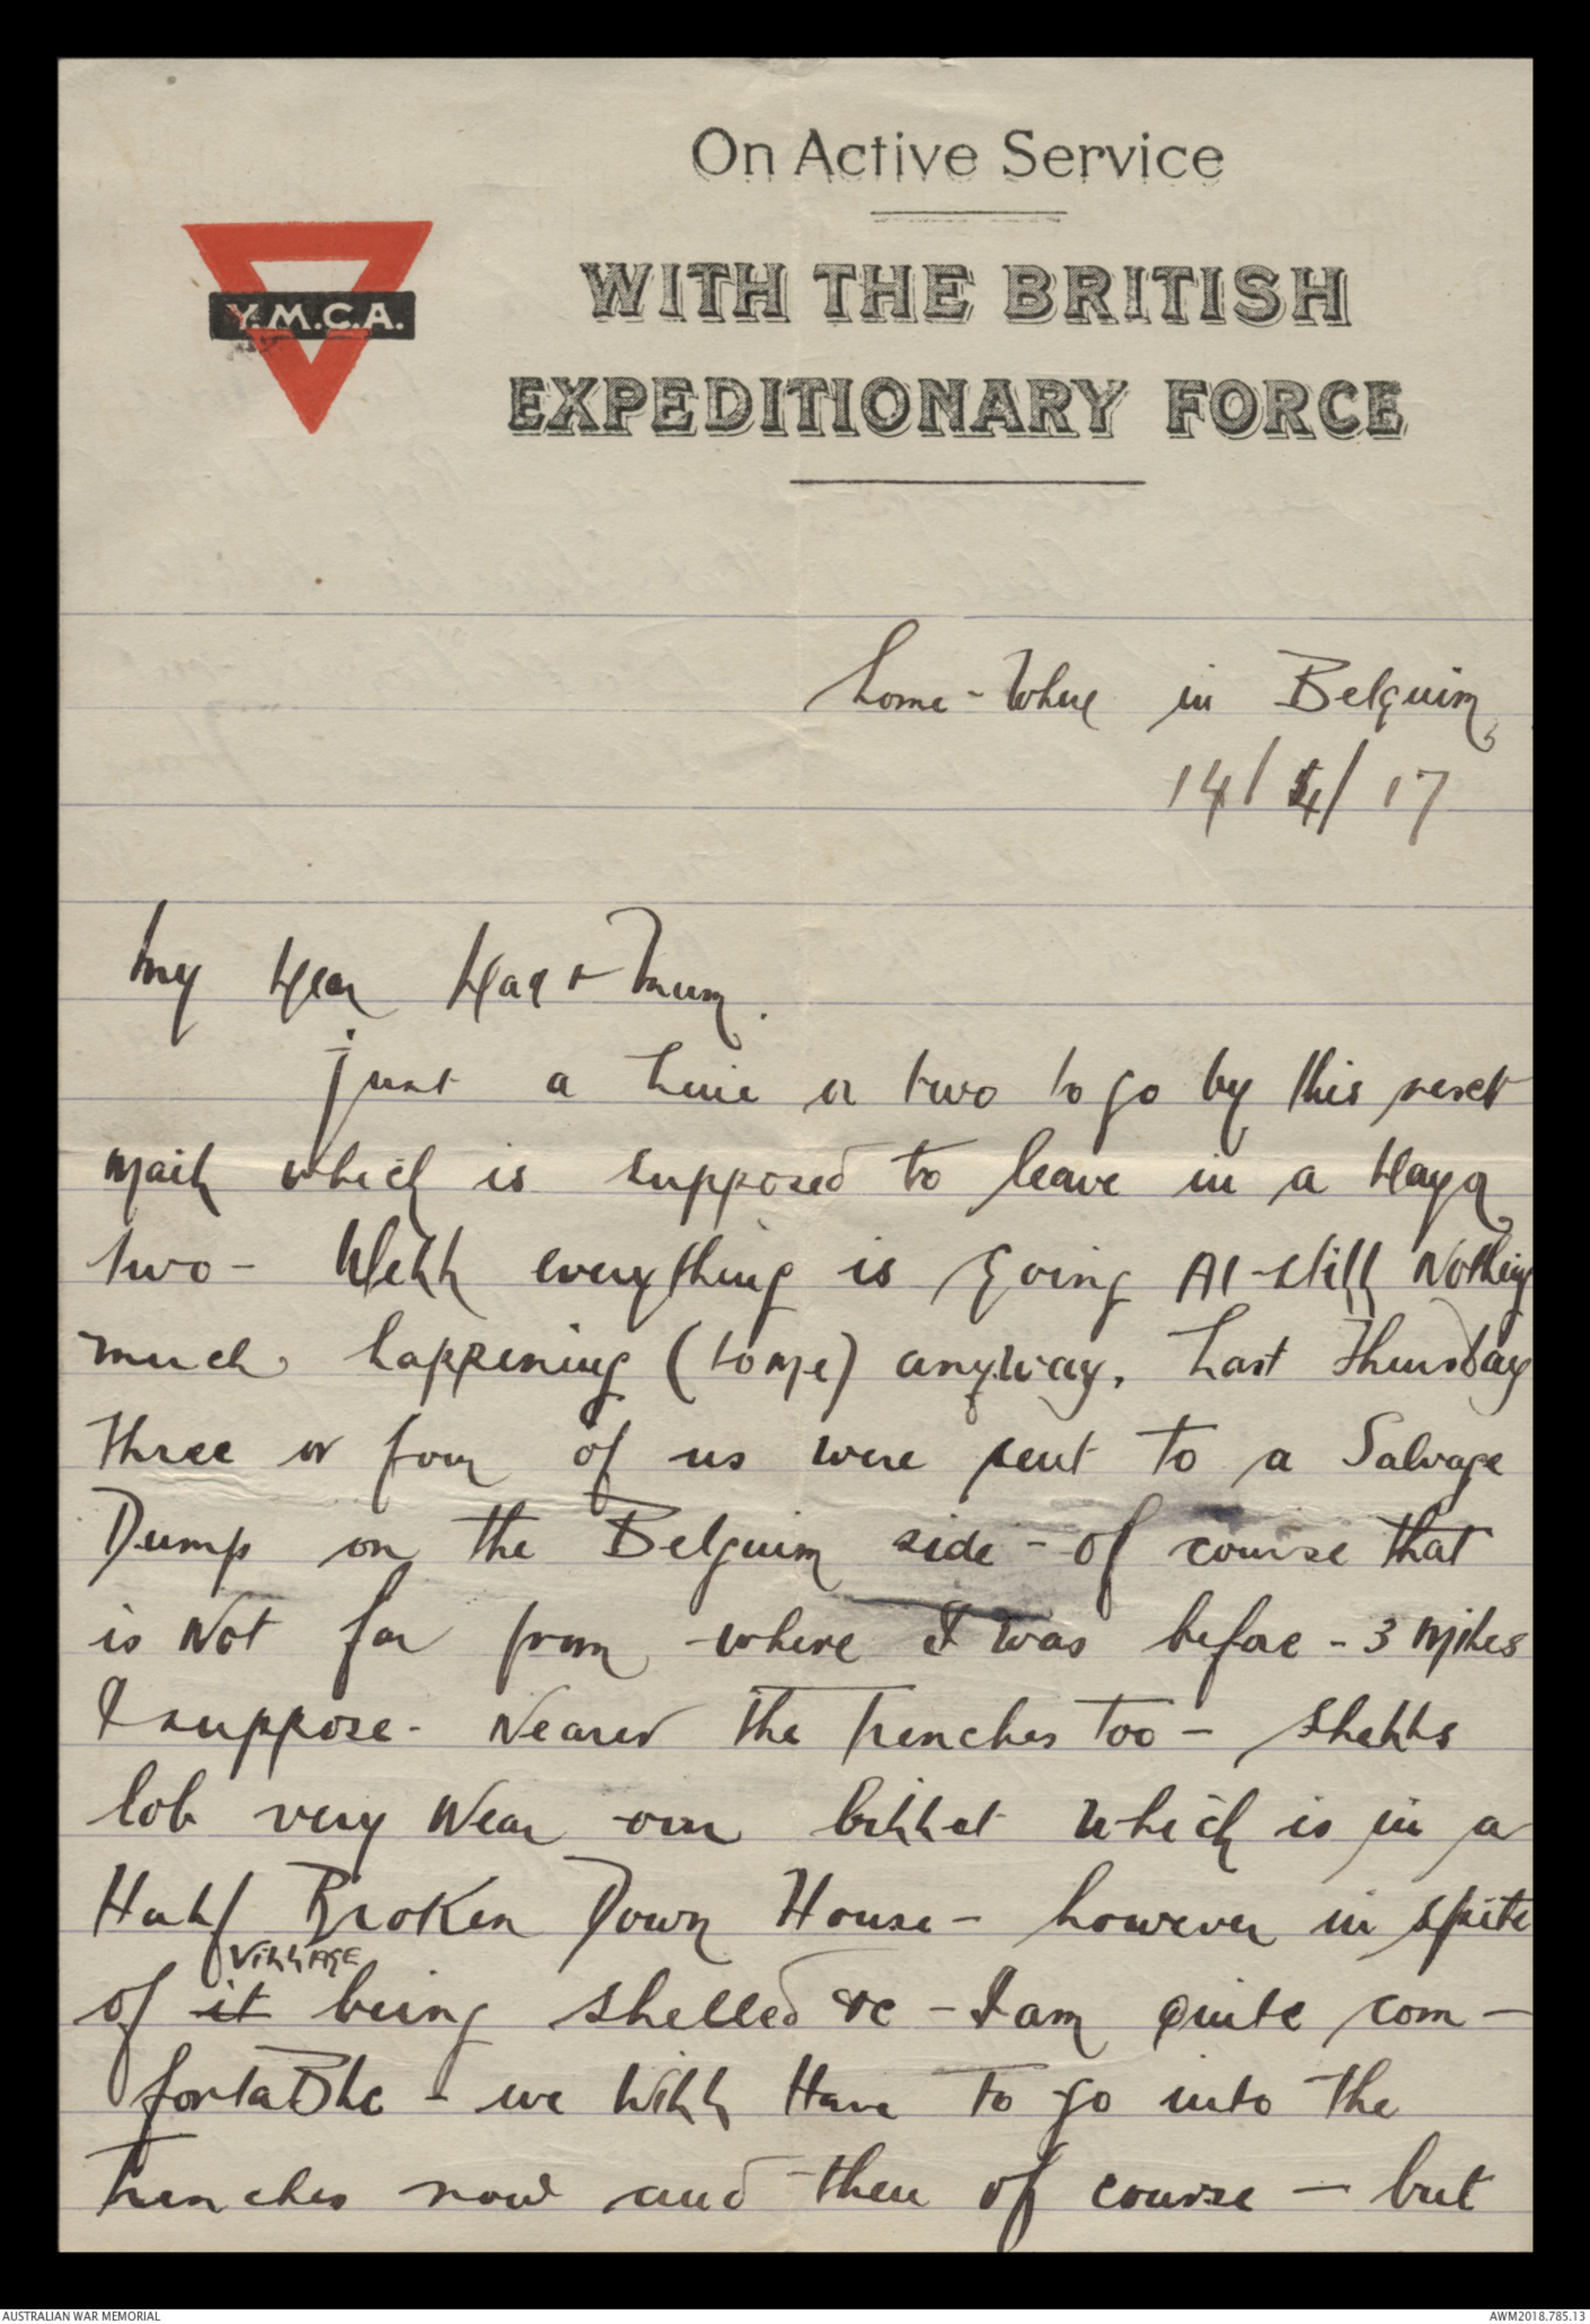 On Active Service
Y.M.C.A.
WITH THE BRITISH
EXPEDITIONARY FORCE
Some-Where in Belguim,
14/4/17
My Dear Dad + Mum.
Just a Line or two to go by this next
mail which is supposed to leave in a day or
two - Well everything is going A1 - still Nothing
much happening (to me) anyway. Last Thursday
three or four of us were sent to a Salvage
Dump on the Belguim side - of course that
is Not far from where I was before - 3 miles
I suppose - Nearer the Trenches too - Shells
lob very Near our billet which is in a
Half Broken Down House - however in spite
VILLAGE
of it being shelled &c - I am quite com-
fortaBle - we Will Have to go into the
Trenches now and then of course - but
AUSTRALIAN WAR MEMORIAL
AWM2018.785.13